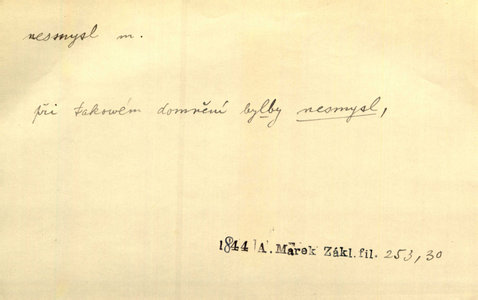 nesmysl m.
při takowém domnění bylby nesmysl,
1844 A. Marek Zákl. fil. 253, 30